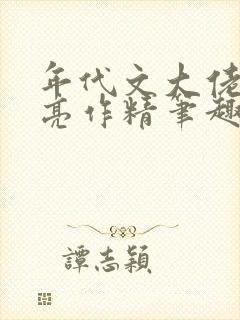 年代文大佬
亮作精筆趣
譚志穎